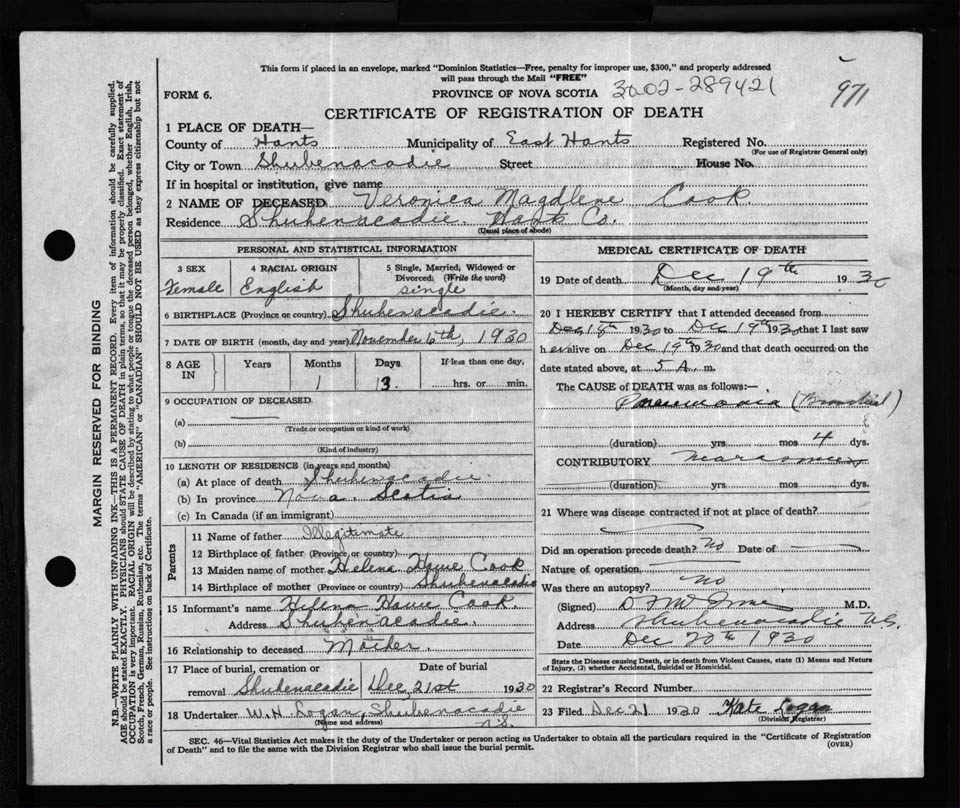 This form if placed in an envelope, marked "Dominion Statistics—Free, penalty for improper use, $300," and properly addressed
will pass through the Mail "FREE"
FORM 6.
PROVINCE OF NOVA SCOTIA
3002-289421
971
CERTIFICATE OF REGISTRATION OF DEATH
1 PLACE OF DEATH—
County of Hants Municipality of East Hants Registered No.
(For use of Registrar General only)
City or Town Shubenacadie Street House No.
If in hospital or institution, give name
2 NAME OF DECEASED Veronica Magdlene Cook
Residence Shubenacadie. Hants Co.
(Usual place of abode)
PERSONAL AND STATISTICAL INFORMATION
3 SEX 4 RACIAL ORIGIN 5 Single, Married, Widowed or
Divorced: (Write the word)
Female English single
6 BIRTHPLACE (Province or country) Shubenacadie.
7 DATE OF BIRTH (month, day and year) November 6th, 1930
8 AGE IN Years Months Days If less than one day,
1 13. hrs. or min.
9 OCCUPATION OF DECEASED
(a)
(Trade or occupation or kind of work)
(b)
(Kind of industry)
10 LENGTH OF RESIDENCE (in years and months)
(a) At place of death Shubenacadie
(b) In province Nova Scotia
(c) In Canada (if an immigrant)
Parents
11 Name of father Illegitimate
12 Birthplace of father (Province or country)
13 Maiden name of mother Helena Cook
14 Birthplace of mother (Province or country) Shubenacadie
15 Informant's name Cook.
Address Shubenacadie.
16 Relationship to deceased Mother.
17 Place of burial, cremation or Date of burial
removal Shubenacadie Dec 21st 1930
18 Undertaker W.H. Logan, Shubenacadie
(Name and address) N.S.
MEDICAL CERTIFICATE OF DEATH
19 Date of death Dec 19th 1930
(Month, day and year)
20 I HEREBY CERTIFY that I attended deceased from
Dec 18th 1930 to Dec 19th 1930 that I last saw
her alive on Dec 19th 1930 and that death occurred on the
date stated above, at 5 A. m.
The CAUSE OF DEATH was as follows:—
Pneumonia (Bronchial)
(duration) yrs mos 4 dys.
CONTRIBUTORY
(duration) yrs mos dys.
21 Where was disease contracted if not at place of death?
Did an operation precede death? No Date of
Nature of operation
Was there an autopsy? No
(Signed) M.D.
Address Shubenacadie N.S.
Date Dec 20th 1930
State the Disease causing Death, or in death from Violent Causes, state (1) Means and Nature
of Injury, (2) whether Accidental, Suicidal or Homicidal.
22 Registrar's Record Number
23 Filed Dec 21 1930 Kate Logan
(Division Registrar)
SEC. 46—Vital Statistics Act makes it the duty of the Undertaker or person acting as Undertaker to obtain all the particulars required in the "Certificate of Registration
of Death" and to file the same with the Division Registrar who shall issue the burial permit.
(OVER)
MARGIN RESERVED FOR BINDING
N.B.—WRITE PLAINLY WITH UNFADING INK—THIS IS A PERMANENT RECORD. Every item of information should be carefully supplied.
AGE should be stated EXACTLY. PHYSICIANS should STATE CAUSE OF DEATH in plain terms, so that it may be properly classified. Exact statement of
OCCUPATION is very important. RACIAL ORIGIN will be described by stating to what people or tongue the deceased person belonged, whether English, Irish,
Scotch, French, German, Russian, Ruthenian, etc. The terms "AMERICAN" or "CANADIAN" SHOULD NOT BE USED as they express citizenship but not
a race or people. See instructions on back of Certificate.